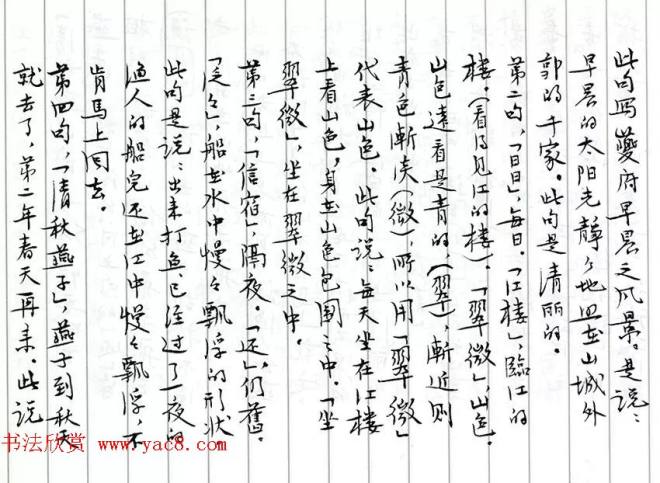 此句写夔府早晨之风景。是说：
早晨的太阳光静々地照在山城外
郭的千家。此句是清丽的。
第二句，「日日」，每日。「江楼」，临江的
楼。（看得见江的楼）。「翠微」，山色。
山色远看是青的，（翠），漸近则
青色漸淡（微），所以用「翠微」
代表山色。此句说：每天坐在江楼
上看山色，身在山色包围之中。「坐
翠微」，坐在翠微之中。
第三句，「信宿」，隔夜。「还」，仍舊。
「泛々」，船在水中慢々飘浮的形状
此句是说：出来打鱼已经过了一夜的
渔人的船儿还在江中慢々飘浮，不
肯马上回去。
第四句，「清秋燕子」，燕子到秋天
就去了，第二年春天再来。此说
书法欣赏 www.yac8.com